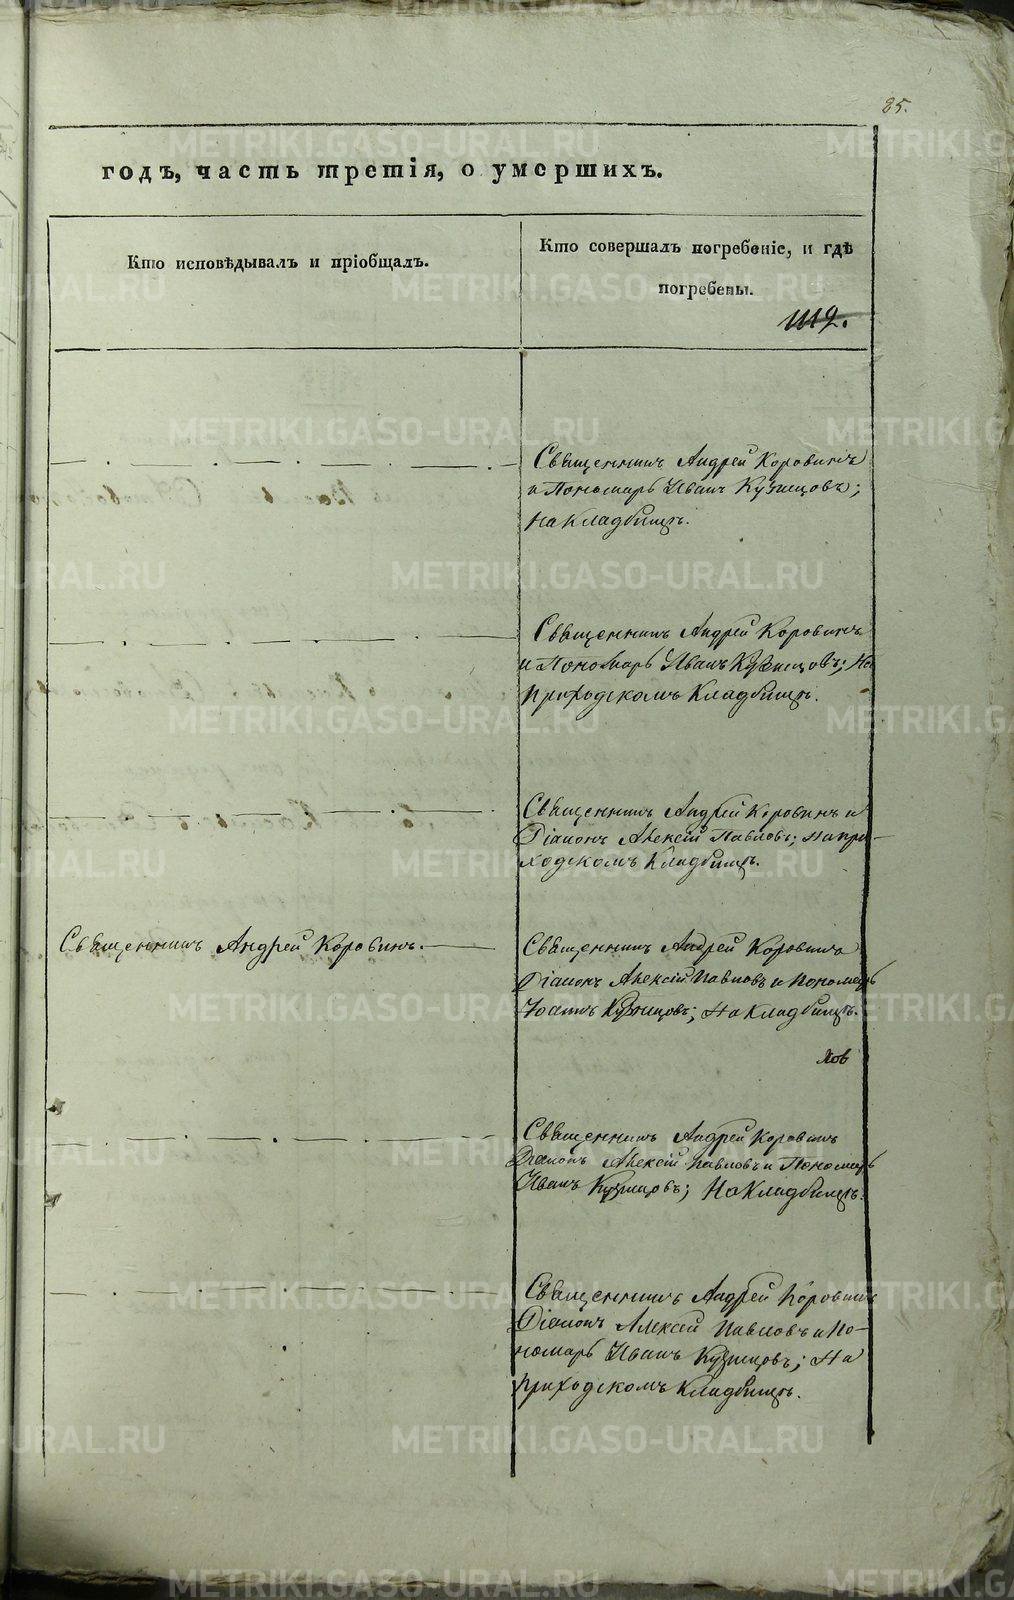 85.
годъ, часть третія, о умершихъ.
Кто исповѣдывалъ и пріобщалъ.
Кто совершалъ погребеніе, и гдѣ
погребены.
1112.
Священникъ Андрей Коровинъ
и Пономарь Иванъ Кузнецовъ;
на кладбищѣ.
Священникъ Андрей Коровинъ
и Пономарь Иванъ Кузнецовъ; На
приходскомъ кладбищѣ.
Священникъ Андрей Коровинъ и
Діаконъ Алексій Павловъ; На при-
ходскомъ кладбищѣ.
Священникъ Андрей Коровинъ.
Священникъ Андрей Коровинъ
Діаконъ Алексій Павловъ и пономарь
Іоаннъ Кузнецовъ; На кладбищѣ.
Священникъ Андрей Коровинъ
Діаконъ Алексій Павловъ и Пономарь
Иванъ Кузнецовъ; На кладбищѣ.
Священникъ Андрей Коровинъ
Діаконъ Алексій Павловъ и по-
номарь Иванъ Кузнецовъ; На
приходскомъ кладбищѣ.
METRIKI.GASO-URAL.RU